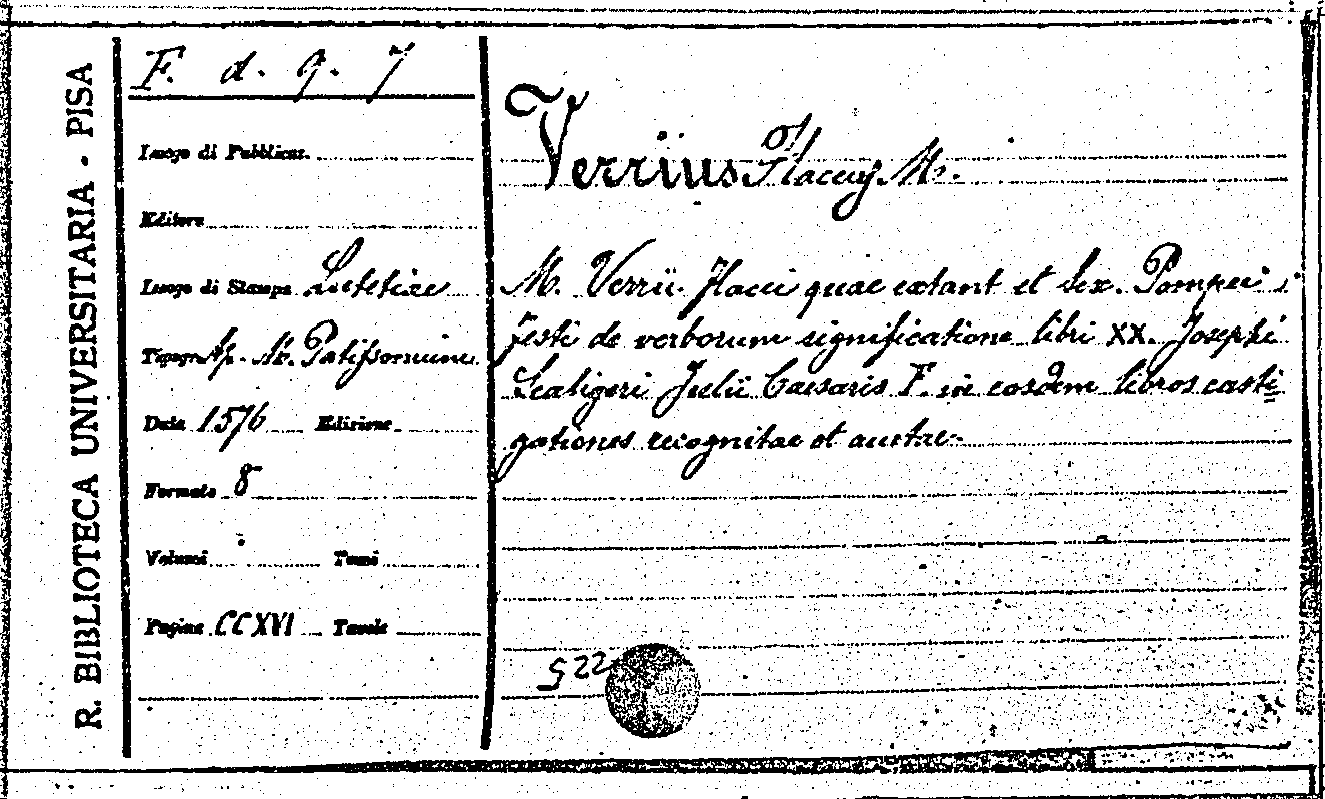 R. BIBLIOTECA UNIVERSITARIA - PISA
F. d. 9. 7
Luogo di Pubblicaz.
Editore
Luogo di Stampa Lutetiae
Tipogr. Ap. M. Patissonium
Data 1576 Edizione
Formato 8
Volumi Tomi
Pagine CCXVI Tavole
Verrius Flaccus M.
M. Verrii Flacci quae extant et Sex. Pompei
Festi de verborum significatione libri XX. Josephi
Scaligeri Julii Caesaris F. in eosdem libros casti=
gationes recognitae et auctae.
522